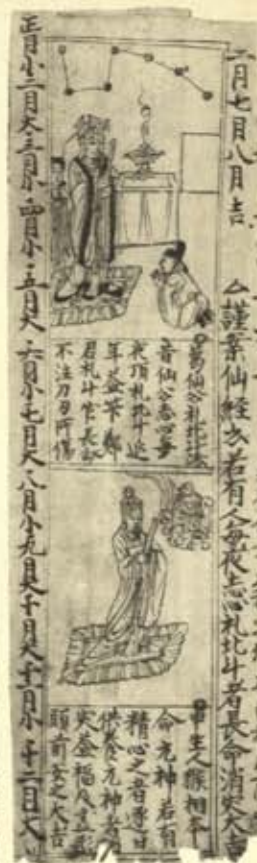 二月七月八月吉
謹案仙經云若有人每夜志心礼北斗者長命消灾大吉
葛仙公礼北斗法
昔仙公志心每
夜頂礼北斗延
年益筭鄭
君礼斗官長命
不注刀刃所傷
申生人猴相本
命元神若有
精心之者逐日
供養元神者
灾益福及真形
頭前安之大吉
正月小二月大三月小四月小五月大六月小七月大八月小九月大十月大十一月小十二月大